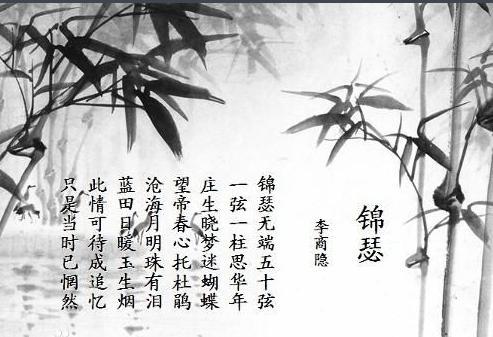 锦瑟
李商隐
锦瑟无端五十弦
一弦一柱思华年
庄生晓梦迷蝴蝶
望帝春心托杜鹃
沧海月明珠有泪
蓝田日暖玉生烟
此情可待成追忆
只是当时已惘然